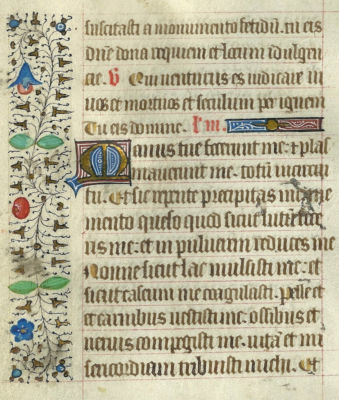 suscitasti a monumento fetidū. tu eis
dn̄e dona requiem et locum īdulgen
cie. v Qui venturus es iudicare vi
vos et mortuos et seculum per ignem
Tu eis domine. l'm.
Manus tue fecerunt me: ⁊ plas
maverunt me. totū in circui
tu. Et sic repente precipitas me me
mento queso quod sicut lutū fece
ris me: et in pulverem reduces me
Nonne sicut lac mulsisti me: et
sicut caseum me coagulasti. pelle et
et carnibus vestisti me. ossibus et
nervis compegisti me. vitā et mi
sericordiam tribuisti michi. Et